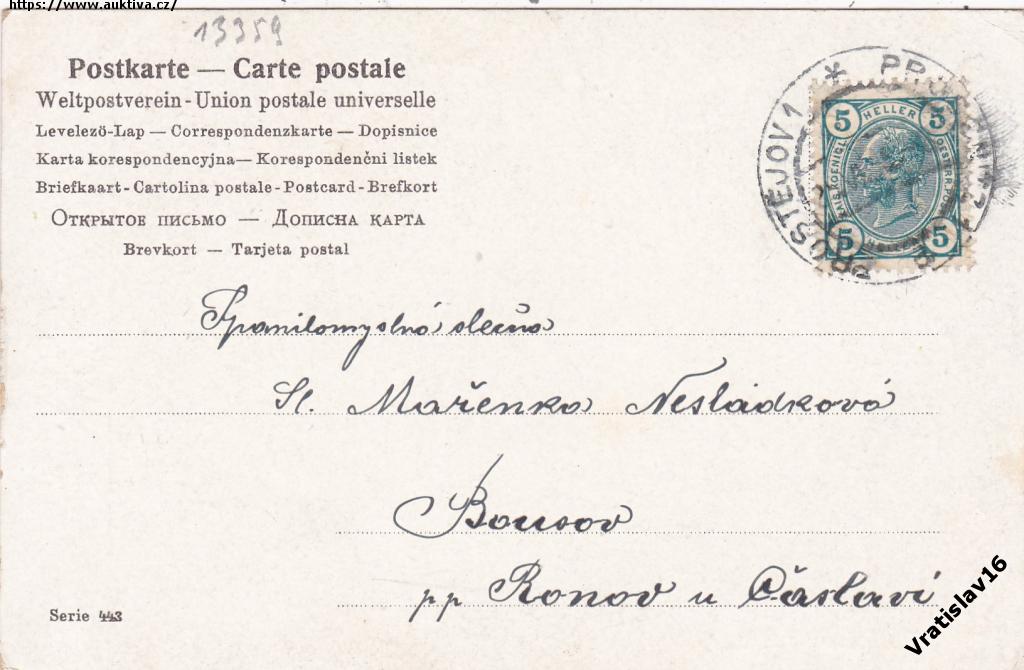 https://www.auktiva.cz/
13359
Postkarte — Carte postale
Weltpostverein - Union postale universelle
Levelezö-Lap — Correspondenzkarte — Dopisnice
Karta korespondencyjna — Korespondenčni listek
Briefkaart - Cartolina postale - Postcard - Brefkort
Открытое письмо — Дописна карта
Brevkort — Tarjeta postal
PROSTĚJOV 1
5 HELLER 5
5 5
Spanilomyslná slečna
Sl. Mařenka Nesládková
Bousov
pp Ronov u Čáslavi
Serie 443
Vratislav16